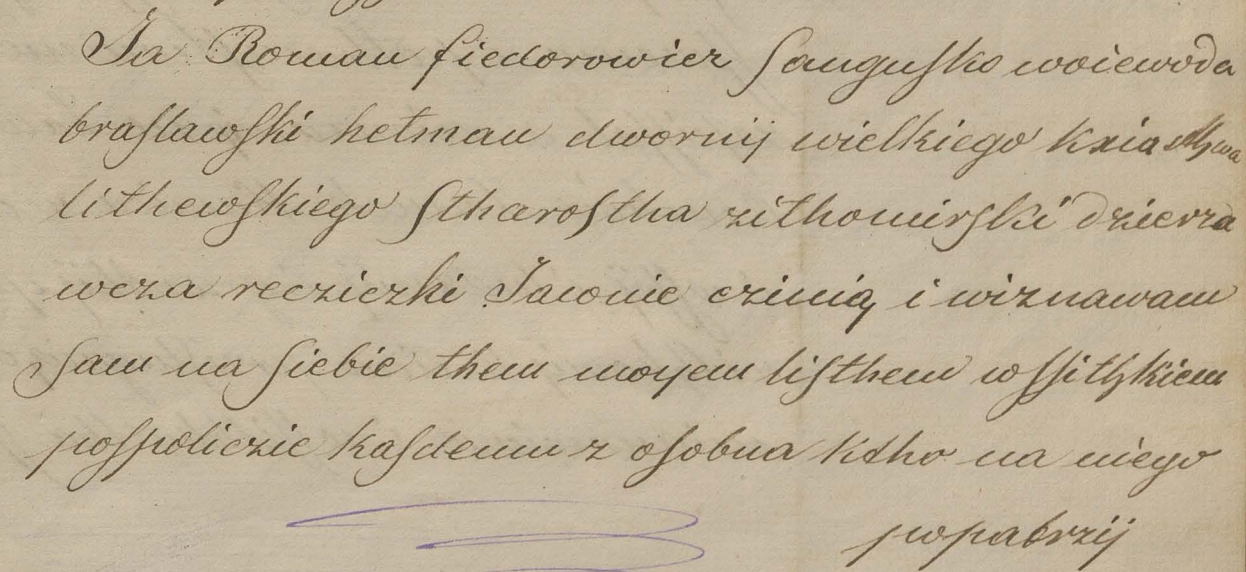 Ja Roman fiedorowicz Sangusko woiewoda
braslawski hetman dwornij wielkiego Kxiastzwa
lithewskiego Stharostha zithomirski dzierza
wcza recziczki Jawnie czinią i wiznawam
Sam na siebie them moyem listhem wssitzkiem
pospoliczie kasdemu z osobna ktho na niego
popatrzij